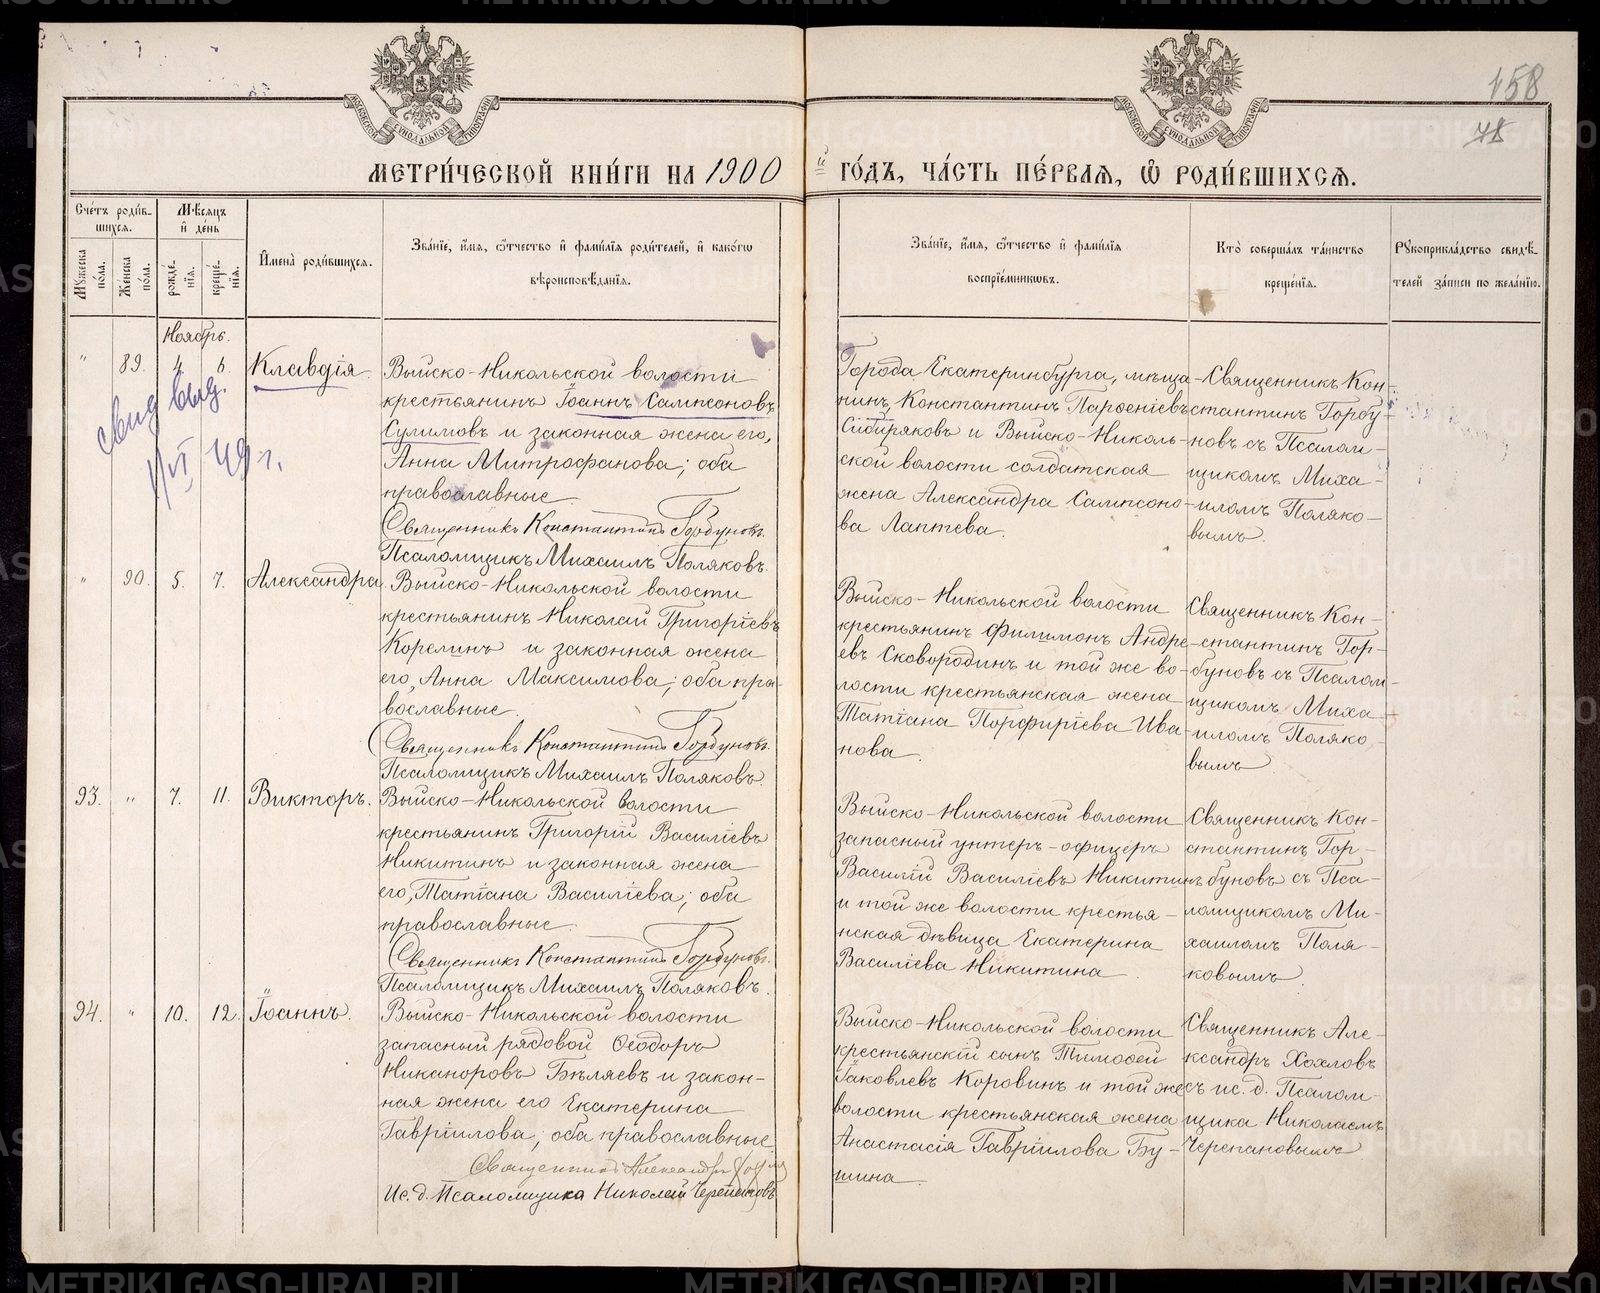 158
78
МЕТРИ́ЧЕСКОЙ КНИ́ГИ НА 1900 й ГО́ДЪ, ЧА́СТЬ ПЕ́РВАѦ, Ѽ РОДИ́ВШИХСѦ.
Сче́тъ роди́в-
шихсѧ.
Мѣ́сѧцъ
и҆ де́нь
И҆мена̀ роди́вшихсѧ.
Зва́нїе, и҆́мѧ, ѻ҆́тчество и҆ фами́лїѧ роди́телей, и҆ како́гѡ
вѣроисповѣ́данїѧ.
Зва́нїе, и҆́мѧ, ѻ҆́тчество и҆ фами́лїѧ
воспрїе́мникѡвъ.
Кто̀ соверша́лъ та́инство
креще́нїѧ.
Рꙋкоприкла́дство свидѣ́-
телей за́писи по жела́нїю.
Мꙋ́жеска по́ла.
Же́нска по́ла.
рожде́-
нїѧ.
креще́-
нїѧ.
Ноябрь.
" 89. 4. 6. Клавдія.
свид выд.
1/VI 49 г.
Выйско-Никольской волости
крестьянинъ Іоаннъ Сампсоновъ
Сулимовъ и законная жена его,
Анна Митрофанова; оба
православные
Священникъ Константинъ Горбуновъ.
Псаломщикъ Михаилъ Поляковъ.
Города Екатеринбурга, мѣща-
нинъ Константинъ Парѳеніевъ
Сибиряковъ и Выйско-Николь-
ской волости солдатская
жена Александра Сампсоно-
ва Лаптева.
Священникъ Кон-
стантинъ Горбу-
новъ съ Псалом-
щикомъ Миха-
иломъ Поляко-
вымъ.
" 90. 5. 7. Александра
Выйско-Никольской волости
крестьянинъ Николай Григоріевъ
Корелинъ и законная жена
его, Анна Максимова; оба пра-
вославные.
Священникъ Константинъ Горбуновъ.
Псаломщикъ Михаилъ Поляковъ.
Выйско-Никольской волости
крестьянинъ Филимонъ Андре-
евъ Сковородинъ и той же во-
лости крестьянская жена
Татіана Порфиріева Ива-
нова.
Священникъ Кон-
стантинъ Гор-
буновъ съ Псалом-
щикомъ Миха-
иломъ Поляко-
вымъ
93. " 7. 11. Викторъ.
Выйско-Никольской волости
крестьянинъ Григорій Василіевъ
Никитинъ и законная жена
его, Татіана Василіева; оба
православные
Священникъ Константинъ Горбуновъ.
Псаломщикъ Михаилъ Поляковъ.
Выйско-Никольской волости
запасный унтеръ-офицеръ
Василій Василіевъ Никитинъ
и той же волости крестья-
нская дѣвица Екатерина
Василіева Никитина.
Священникъ Кон-
стантинъ Гор-
буновъ съ Пса-
ломщикомъ Ми-
хаиломъ Поля-
ковымъ.
94. " 10. 12. Іоаннъ.
Выйско-Никольской волости
запасный рядовой Ѳеодоръ
Никаноровъ Бѣляевъ и закон-
ная жена его Екатерина
Гавріилова; оба православные
Священникъ Александръ
Ис. д. Псаломщика Николай Черепановъ
Выйско-Никольской волости
крестьянскій сынъ Тимоѳей
Іаковлевъ Коровинъ и той же
волости крестьянская жена
Анастасія Гавріилова Бу-
шина.
Священникъ Але-
ксандръ Хохловъ
съ ис. д. Псалом-
щика Николаемъ
Черепановымъ
METRIKI.GASO-URAL.RU